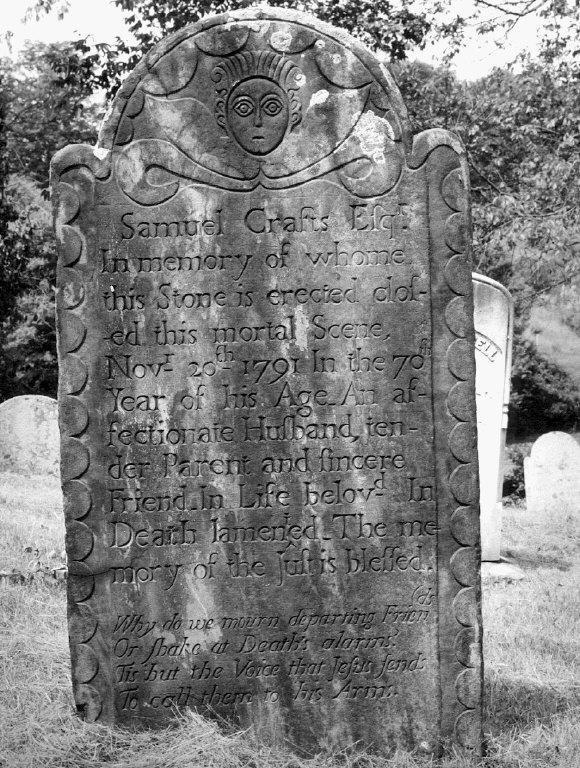 Samuel Crafts Esqr.
In memory of whome
this Stone is erected clos-
-ed this mortal Scene,
Novr 20th 1791 In the 70th
Year of his Age. An af-
fectionate Husband, ten-
der Parent and sincere
Friend. In Life belovd In
Death lamented. The me-
mory of the Just is blessed.
Why do we mourn departing Frien(ds
Or shake at Death's alarms?
Tis but the Voice that Jesus sends
To call them to his Arms.
ELL